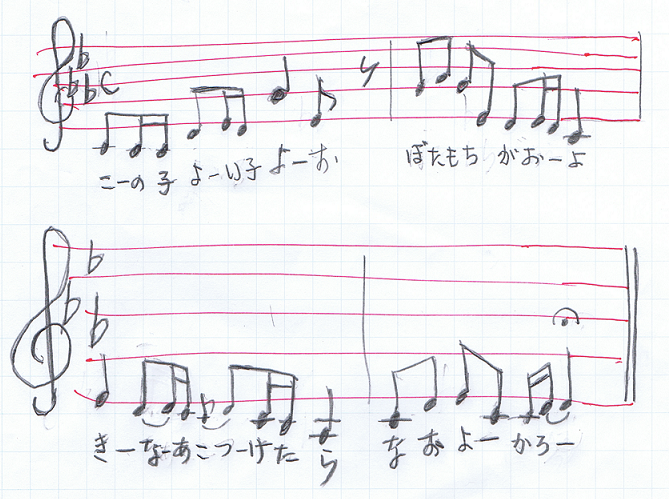 こーの子 よーい子 よーお ぼたもち がおーよ
きーなーあこつーけた ら なおよー かろー